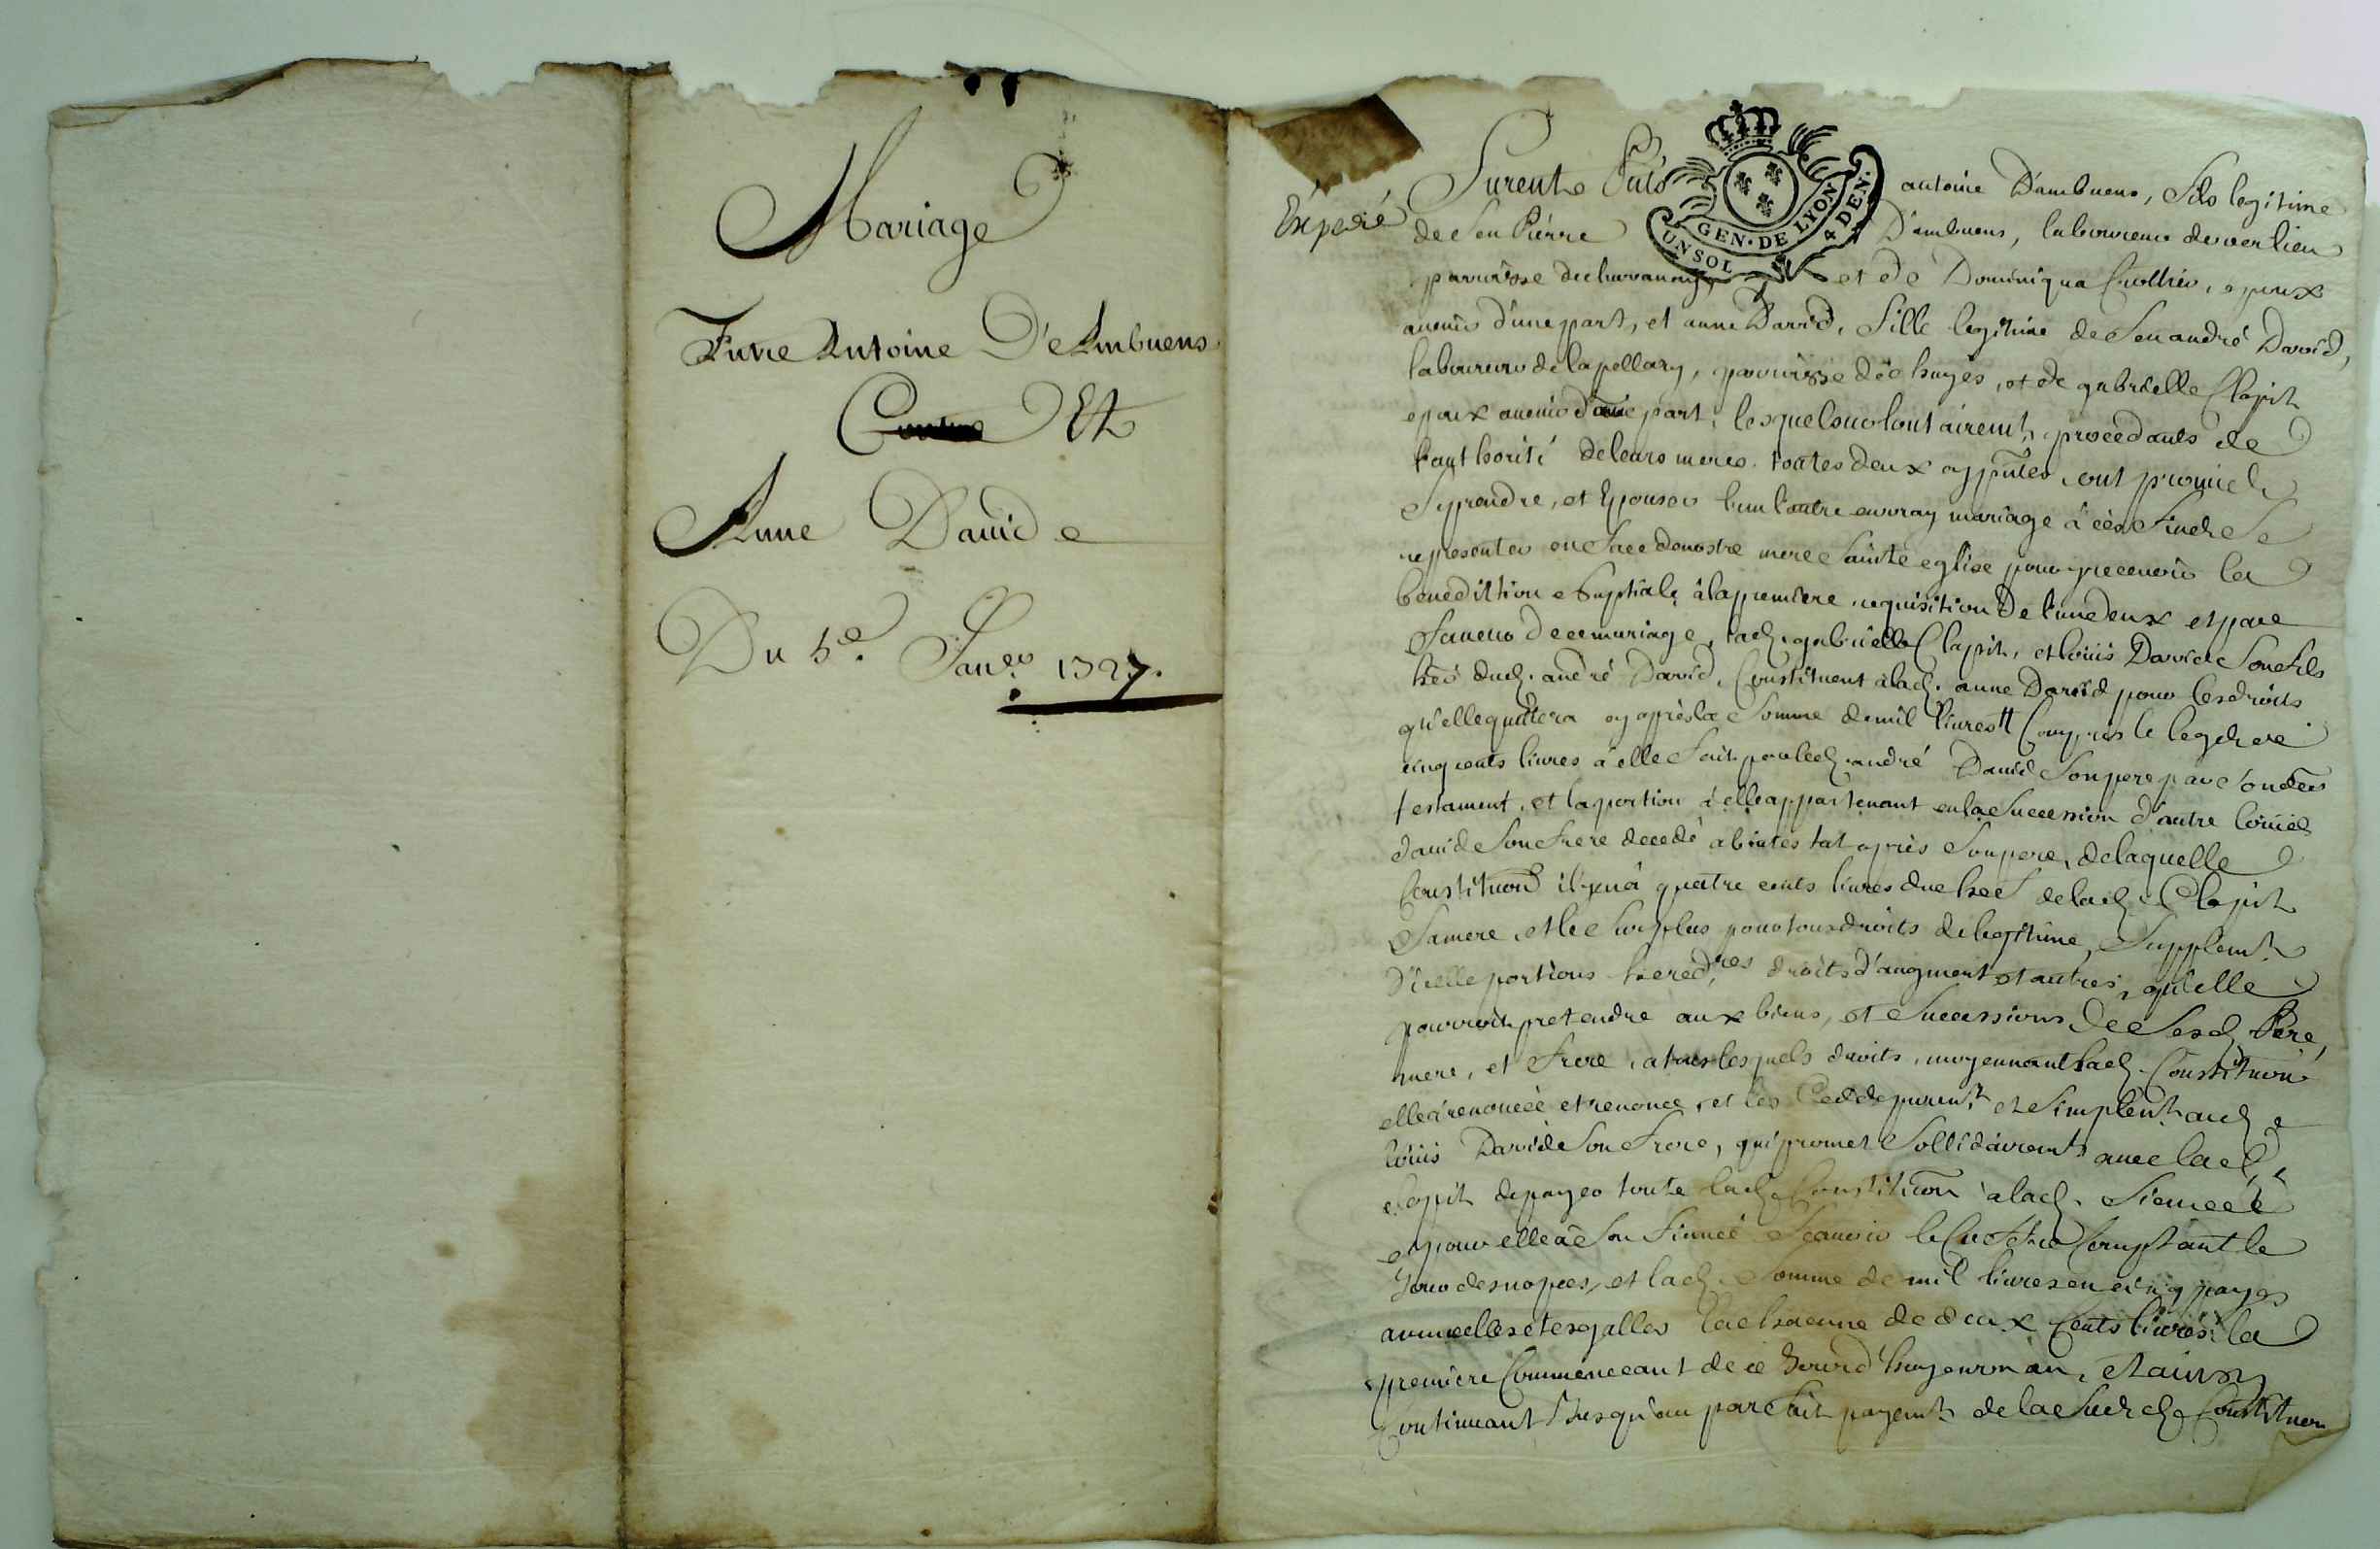 Mariage
Entre Antoine D'Ambuens
Contre Et
Anne David
Du 5e. Janer 1727.
Expedié
Furent Pnts antoine Dambuens, fils legitime
de feu Pierre Dambuens, laboureur de verlieu
parroisse de chavanay et de Dominiqua epoux
avenir d'une part, et anne David, fille legitime de feu andré David,
laboureur de lapellary, parroisse de chuyes, et de gabrielle Clapit
epoux avenir d'autre part, lesquels volontairemt procedants de
l'authorité de leurs meres toutes deux cy pntes, ont promie de
se prendre, et Epouser l'un l'autre en vray mariage a ces fins de se
representer en face de nostre mere Sainte eglise pour y recevoir la
benediction Nuptiale a la premiere requisition de l'un deux et par
faveur de ce mariage, lad. gabrielle Clapit, et loüis David son fils
her dud. andré David, Constituent a lad. anne David pour les droits
qu'elle quittera cy aprés la somme de mil livres Compris le legs de
cinq cents livres a elle fait par led. andré David son pere par son der
testament, et la portion a elle appartenant en la succession d'autre loüis
david son frere decedé abintestat aprés son pere, de laquelle
Constituon il y en a quatre cents livres du chef de lad. Clapit
sa mere, et le surplus pour tous droits de legitime, supplemt
d'icelle portions heredres droits d'augment et autres, qu'elle
pourroit pretendre aux biens, et successions de sesd. Pere,
mere, et frere, a tous lesquels droits, moyennant lad. Constituon
elle a renoncée et renonce, et les Cedde puremt et simplemt aud.
loüis David son frere, qui promet sollidairemt avec lad.
Clapit de payer toute lad. Constituon a lad. fiancée
et pour elle a son fiancé scavoir le Coffre Comptant le
Jour des nopces, et lad. somme de mil livres en cinq payes
annuelles et esgalles chacune de deux Cents livres la
premiere Commenceant de ce Jourd'huy en un an, et ainsy
Continuant Jusqu'au parfait payemt de la susd. Constituon
GEN. DE LYON
UN SOL 4 DEN.